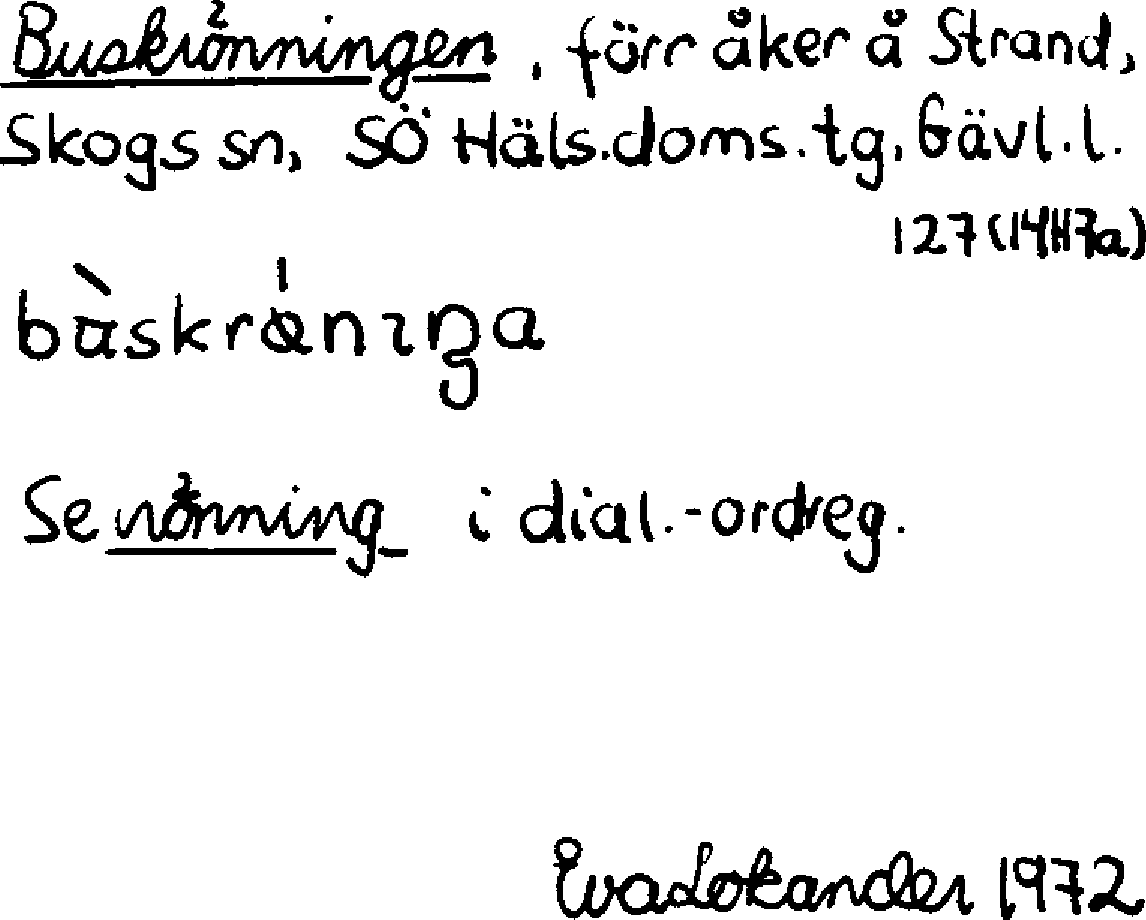 Buskrönningen, förr åker å Strand,
Skogs sn, SÖ Häls.doms.tg, Gävl.l.
127 (14H7a)
Se rönning i dial.-ordreg.
Eva Lokander 1972